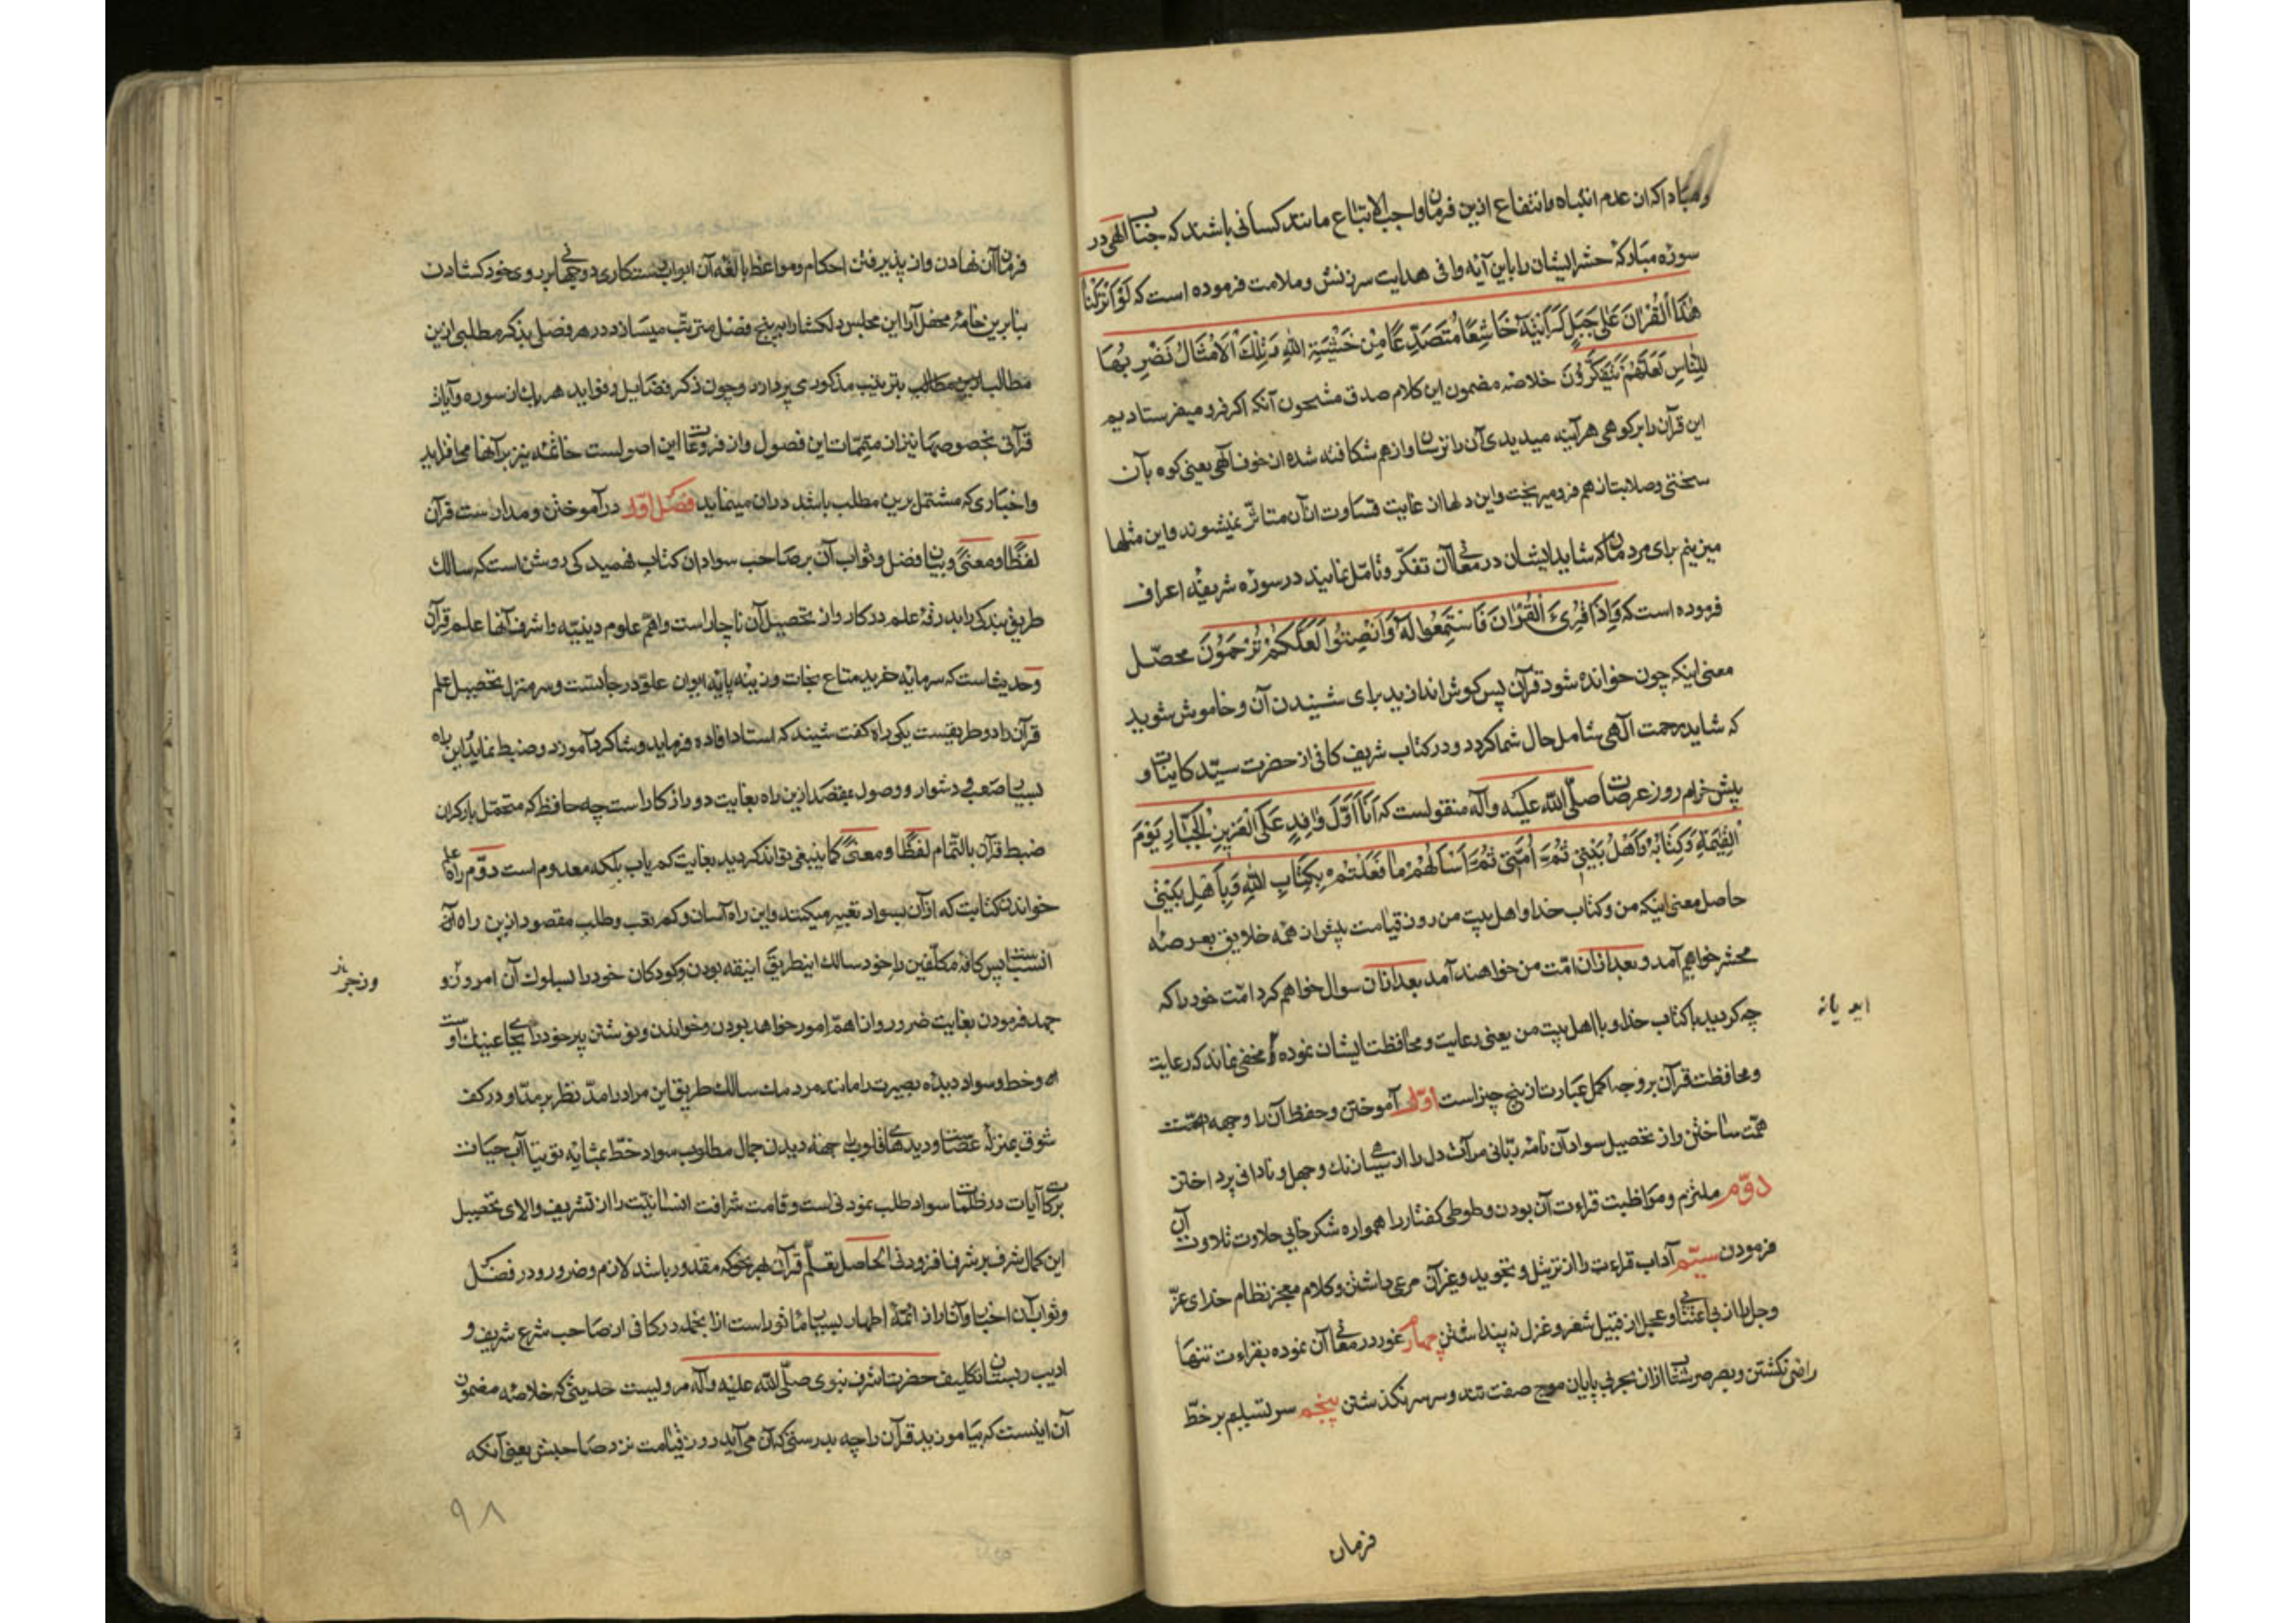 ومبادا کزان عدم انتباه وانتفاع ازین فرمان واجب الاتباع مانند کسانی باشند که جناب الهی در
سورهٔ مبارکهٔ حشر ایشان را باین آیهٔ وافی هدایت سرزنش وملامت فرموده است که لَوْ اَنْزَلْنَا
هٰذَا الْقُرْانَ عَلٰی جَبَلٍ لَرَاَیْتَهُ خَاشِعًا مُتَصَدِّعًا مِنْ خَشْیَةِ اللهِ وَتِلْكَ الْاَمْثَالُ نَضْرِبُهَا
لِلنَّاسِ لَعَلَّهُمْ یَتَفَکَّرُوْنَ خلاصهٔ مضمون این کلام صدق مشحون آنکه اکر فرو میفرستادیم
این قرآن را بر کوهی هرآینه میدیدی آن را ترسان واز هم شکافته شده از خوف الهی یعنی کوه بآن
سختی وصلابت از هم فرو میریخت واین دلها از غایت قساوت ازآن متاثّر نمیشوند واین مثلها
میزنیم برای مردمان که شاید ایشان در معانی آن تفکّر وتامّل نمایند در سورهٔ شریفهٔ اعراف
فرموده است که وَاِذَا قُرِئَ الْقُرْاٰنَ فَاسْتَمِعُوا لَهُ وَاَنْصِتُوا لَعَلَّکُمْ تُرْحَمُوْنَ محصّل
معنی اینکه چون خوانده شود قرآن پس کوش اندازید برای شنیدن آن وخاموش شوید
که شاید رحمت آلهی شامل حال شما کردد ودر کتاب شریف کافی از حضرت سیّد کاینات و
پیش خرام روز عرصات صلّی الله علیه وآله منقولست که اَنَا اَوَّلُ وَافِدٍ عَلَی الْعَزِیزِ الْجَبَّارِ یَوْمَ
الْقِیٰمَةِ وَکِتَابُهُ وَاَهْلُ بَیْتِی ثُمَّ اُمَّتِی ثُمَّ اَسْاَلُهُمْ مَا فَعَلْتُمْ بِکِتَابِ اللهِ وَبِاَهْلِ بَیْتِی
حاصل معنی اینکه من وکتاب خدا واهل بیت من روز قیامت پیش از همه خلایق بعرصهٔ
محشر خواهیم آمد وبعد ازان امّت من خواهند آمد بعد ازان سوال خواهم کرد امّت خود را که
چه کردید با کتاب خدا وبا اهل بیت من یعنی رعایت ومحافظت ایشان نموده مخفی نماند که رعایت
ومحافظت قرآن بر وجه اکمل عبارت از پنج چیز است اوّل آموختن وحفظ آن را وجهه همّت
همّت ساختن واز تحصیل سواد آن نامهٔ ربّانی مرآت دل را از سیاهی زنك وجهل ونادانی پرداختن
دوّم ملتزم ومواظبت قراءت آن بودن وطوطی کفتار را همواره شکر خایی حلاوت تلاوت آن
فرمودن سیّم آداب قراءت را از ترتیل وتجوید وغیر آن مرعی داشتن وکلام معجز نظام خدای عزّ
وجل را از بی اعتنایی وعجل از قبیل شعر وغزل نه پنداشتن چهارم غور در معانی آن نموده بقراءت تنها
راضی نکشتن وبصرصر شتاب ازان بحر بی پایان موج صفت تند وسرسر نکذشتن پنجم سر تسلیم بر خطّ
فرمان
فرمان آن نهادن واز پذیرفتن احکام ومواعظ بالغهٔ آن ابواب رستکاری دو جهانی بر روی خود کشادن
بنا برین خامهٔ محفل آرا این مجلس دلکشا را به پنج فصل مترتّب میسازد ودر هر فصل بذکر مطلبی ازین
مطالب بترتیب مذکور می پردازد وچون ذکر فضایل وفواید هر یك از سوره وآیات
قرآنی بخصوصها نیز از متمّمات این فصول واز فروعات این اصولست خاتمه نیز بر آنها می افزاید
واخباری که مشتمل برین مطلب باشد دران مینماید فصل اوّل در آموختن ومدارست قرآن
لفظًا ومعنیً وبیان فضل وثواب آن بر صاحب سوادان کتاب فهمیدکی روشن است که سالك
طریق بندکی را بدرقهٔ علم در کار واز تحصیل آن ناچار است واهمّ علوم دینیّه واشرف آنها علم قرآن
وحدیث است که سرمایهٔ خرید متاع نجات وزینهٔ پایهٔ ایوان علوّ درجاتست وسر منزل تحصیل علم
قرآن را دو طریقست یکی راه کفت شنید که استاد افاده فرماید وشاکرد آموزد وضبط نماید این راه
بسیار صعب ودشوار ووصول بمقصد ازین راه بغایت دور از کار است چه حافظه که متحمّل بار کران
ضبط قرآن بالتّمام لفظًا ومعنیً کما ینبغی تواند کردید بغایت کم یاب بلکه معدوم است دوّم راه علم
خواندن کتابت که ازان بسواد تعبیر میکنند واین راه آسان وکم تعب وطلب مقصود ازین راه آن
انسبست پس کافهٔ مکلّفین را خود سالك اینطریق انیقه بودن وکودکان خود را بسلوك آن امر وزو
ورنجر
جهد فرمودن بغایت ضرور واز اهمّ امور خواهد بودن وخواندن ونوشتن پیر خود را بجای عینك است
وخط وسواد دیدهٔ بصیرت را مانند مردمك سالك طریق این مراد را مدّ نظر بر مدّ او در کف
شوق بمنزلهٔ عصاست ودیدهای قلوب را جهة دیدن جمال مطلوب سواد خطّ بمثابه توتیا آب حیات
برکات آیات در ظلمات سواد طلب نمودنی است وقامت شرافت انسانیّت را از تشریف والای تحصیل
این کمال شرف بر شرف افزودنی الحاصل تعلّم قرآن بهر نحو که مقدور باشد لازم وضرور ودر فضل
وثواب آن اخبار وآثار از ائمّهٔ اطهار بسیار ماثور است ازانجمله در کافی از صاحب شرع شریف و
ادیب دبستان تکلیف حضرت اشرف نبوی صلّی الله علیه وآله مرویست حدیثی که خلاصه مضمون
آن اینست که بیاموزید قرآن را چه بدرستی که آن می آید روز قیامت نزد صاحبش یعنی آنکه
۹۸